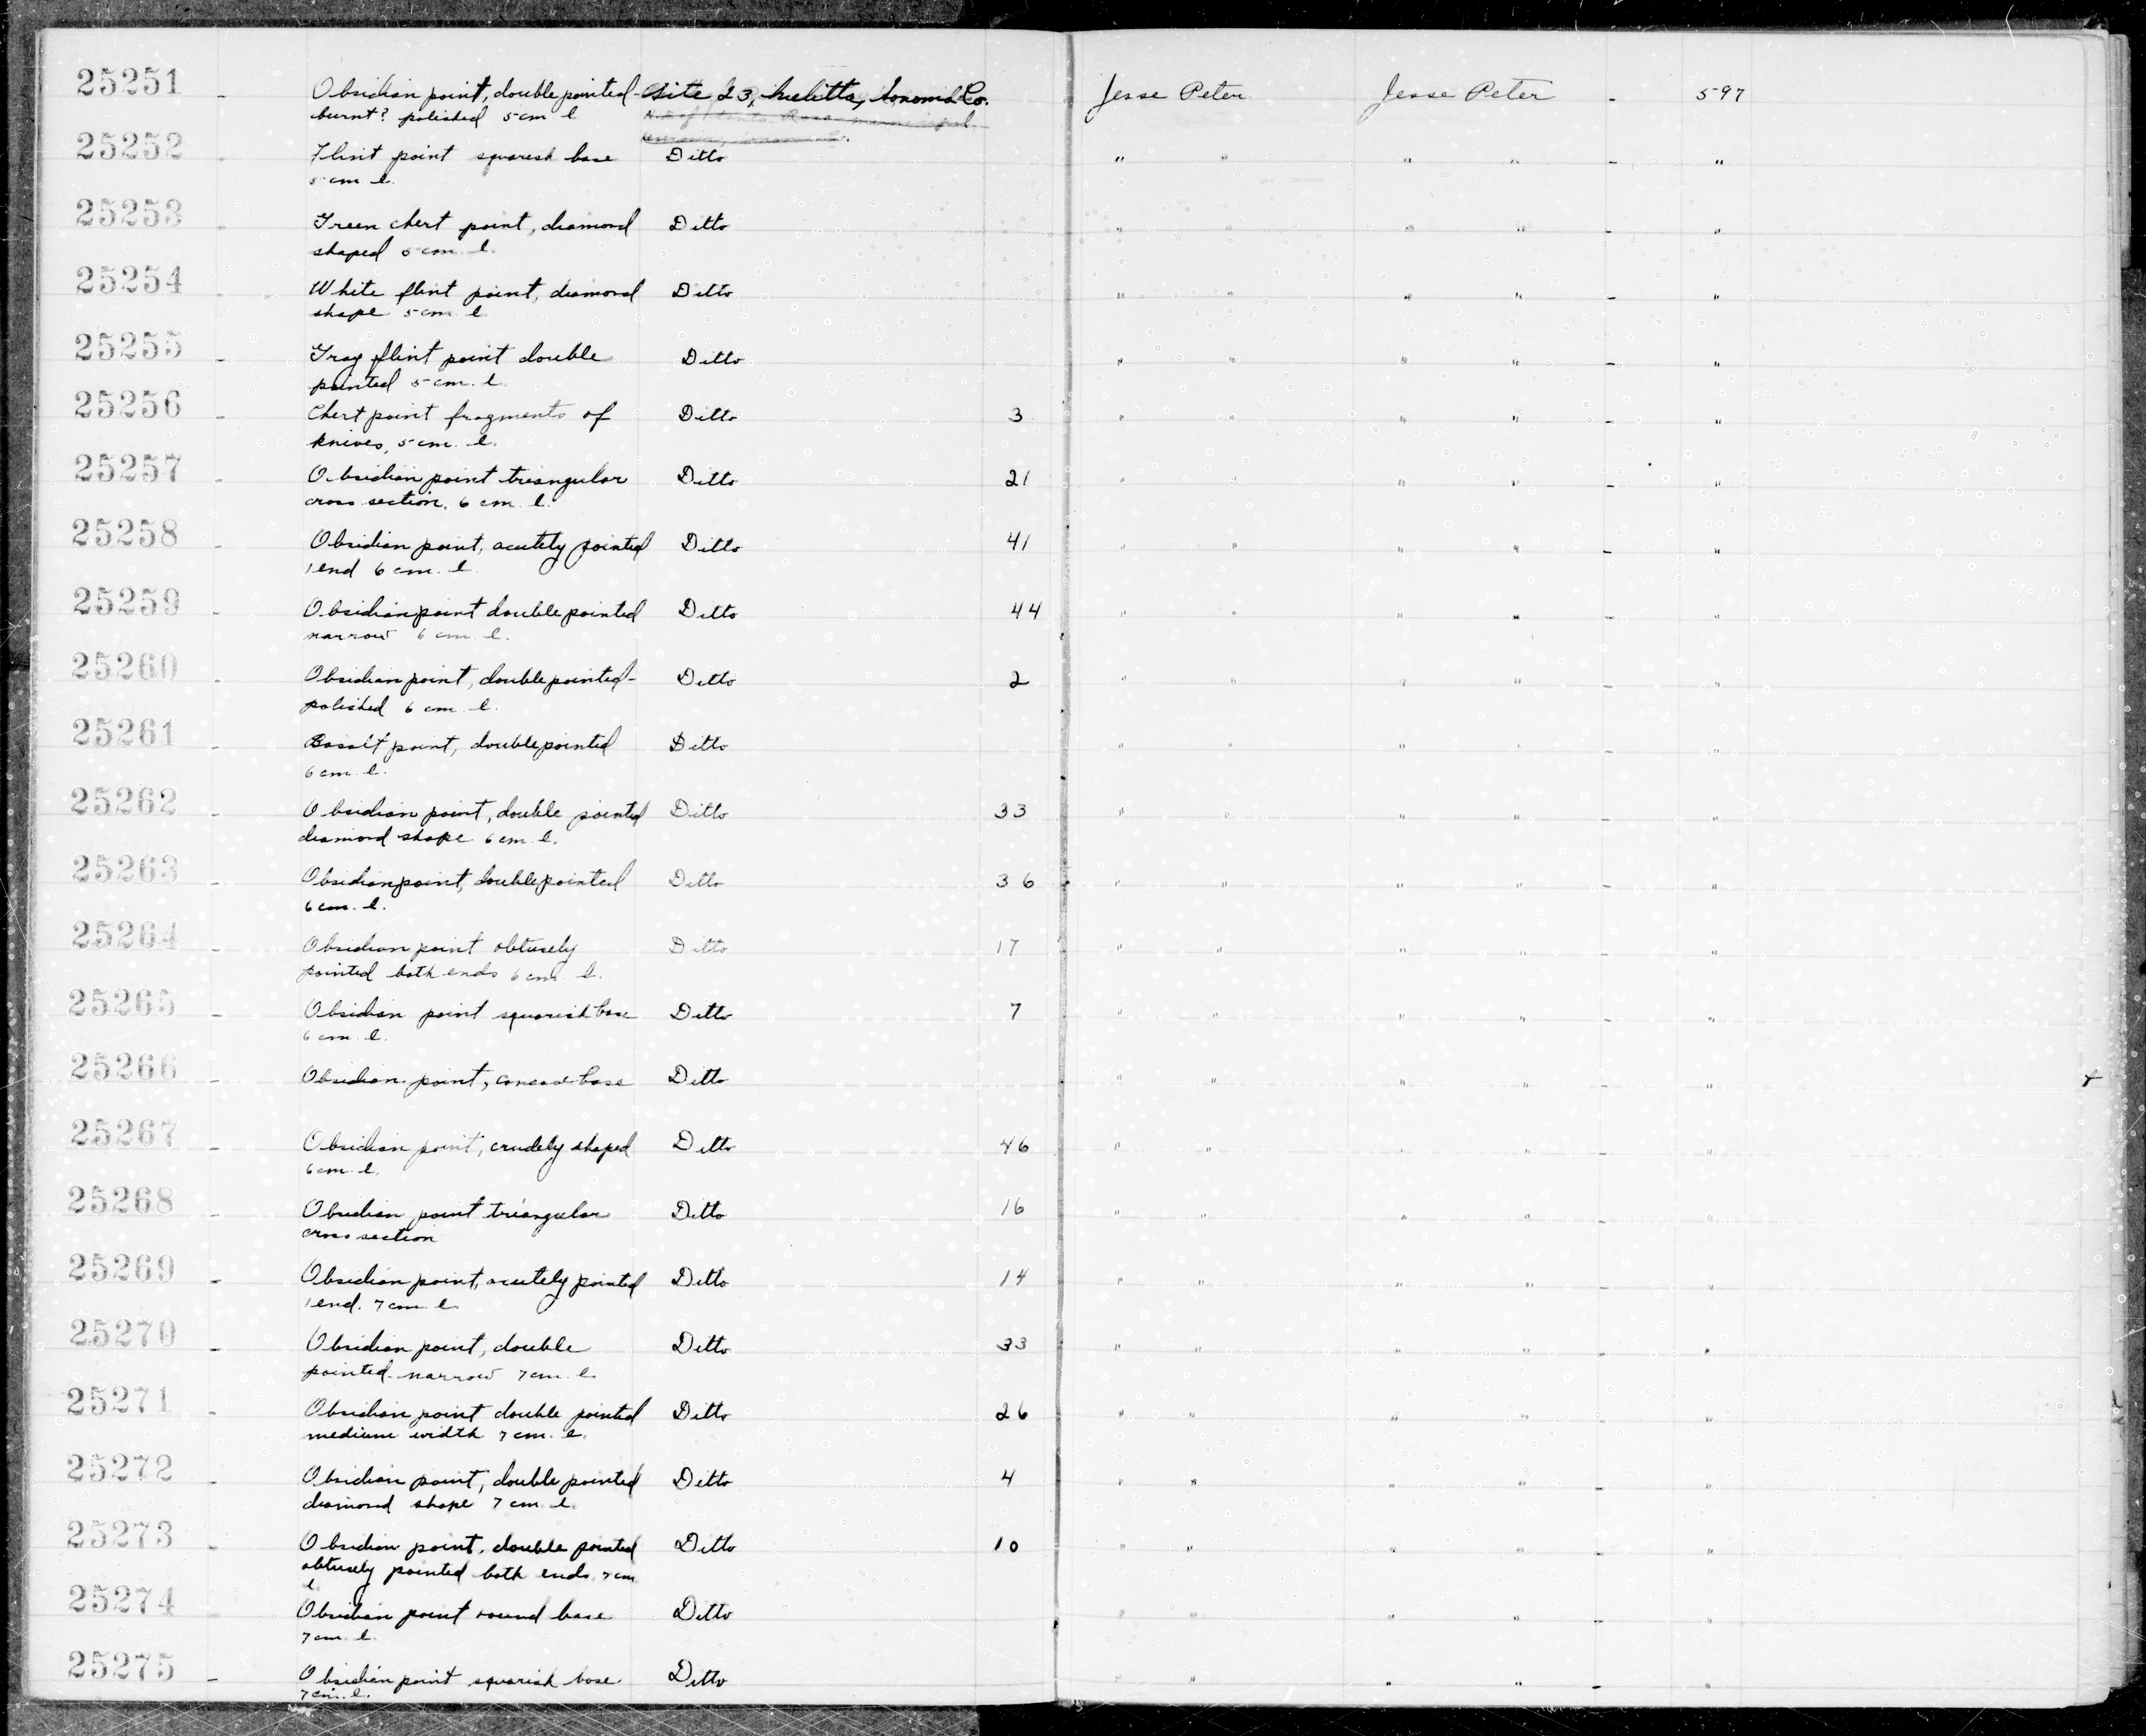 25251 - Obsidian point, double pointed- Site 23, Melitta, Sonoma Co. Jesse Peter Jesse Peter - 597
burnt? polished 5 cm l
25252 - Flint point squarish base Ditto " " " " - "
5 cm l.
25253 - Green chert point, diamond Ditto " " " " - "
shaped 5 cm. l.
25254 - White flint point, diamond Ditto " " " " - "
shape 5 cm l
25255 - Gray flint point double Ditto " " " " - "
pointed 5 cm. l.
25256 - Chert point fragments of Ditto 3 " " " " - "
knives, 5 cm. l.
25257 - Obsidian point triangular Ditto 21 " " " " - "
cross section, 6 cm l.
25258 - Obsidian point, acutely pointed Ditto 41 " " " " - "
1 end 6 cm. l.
25259 - Obsidian point double pointed Ditto 44 " " " " - "
narrow 6 cm. l.
25260 - Obsidian point, double pointed- Ditto 2 " " " " - "
polished 6 cm l.
25261 - Basalt point, double pointed Ditto " " " " - "
6 cm. l.
25262 - Obsidian point, double pointed Ditto 33 " " " " - "
diamond shape 6 cm l.
25263 - Obsidian point, double pointed Ditto 36 " " " " - "
6 cm. l.
25264 - Obsidian point obtusely Ditto 17 " " " " - "
pointed both ends 6 cm l.
25265 - Obsidian point squarish base Ditto 7 " " " " - "
6 cm. l.
25266 - Obsidian point, concave base Ditto " " " " - "
25267 - Obsidian point, crudely shaped Ditto 46 " " " " - "
6 cm. l.
25268 - Obsidian point triangular Ditto 16 " " " " - "
cross section
25269 - Obsidian point, acutely pointed Ditto 14 " " " " - "
1 end. 7 cm l
25270 - Obsidian point, double Ditto 33 " " " " - "
pointed-narrow 7 cm. l.
25271 - Obsidian point double pointed Ditto 26 " " " " - "
medium width 7 cm. l.
25272 - Obsidian point, double pointed Ditto 4 " " " " - "
diamond shape 7 cm l.
25273 - Obsidian point, double pointed Ditto 10 " " " " - "
obtusely pointed both ends 7 cm
l.
25274 - Obsidian point round base Ditto " " " " - "
7 cm. l.
25275 - Obsidian point squarish base Ditto " " " " - "
7 cm. l.